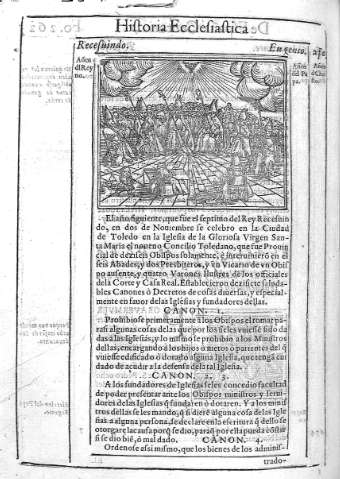 Historia Ecclesiastica
Recesuindo. Eugenio.
Años
dl Rey
no.
El año siguiente, que fue el septimo del Rey Recesuin
do, en dos de Nouiembre se celebro en la Ciudad
de Toledo en la Iglesia de la Gloriosa Virgen San-
ta Maria el noueno Concilio Toledano, que fue Prouin
cial de diez seis Obispos solamente, è interuinieron
seis Abades, y dos Presbiteros, y un Vicario de vn Obis
po ausente, y quatro Varones Ilustres de los officiales
de la Corte y Casa Real. Establecieron diez siete saluda-
bles Canones ò Decretos de cosas diuersas, y especial-
mente en fauor de las Iglesias y fundadores dellas.
CANON. 1.
Prohibiose primeramente à los Obispos el tomar pa-
ra si algunas cosas de las que por los fieles vuiesse sido da
das à las Iglesias, y lo mismo se prohibio à los Ministros
dellas, encargando à los hijos ò nietos ò parientes del q̃
vuiesse edificado ò dotado alguna Iglesia, que tenga cui
dado de acudir a la defensa de la tal Iglesia.
CANON. 2. 3.
A los fundadores de Iglesias se les concedio facultad
de poder presentar ante los Obispos ministros y ser-
uidores de las Iglesias q̃ fundaren ò dotaren. Y a los minis
tros dellas se les mando, q̃ si diere alguna cosa de las Igle
sias a alguna persona, se declare en la escritura q̃ dello se
otorgare la causa porq̃ se dio, para q̃ por ella pueda constar
si se dio biē, ò mal dado. CANON. 4.
Ordenose assi mismo, que los bienes de los adminis-
trado-